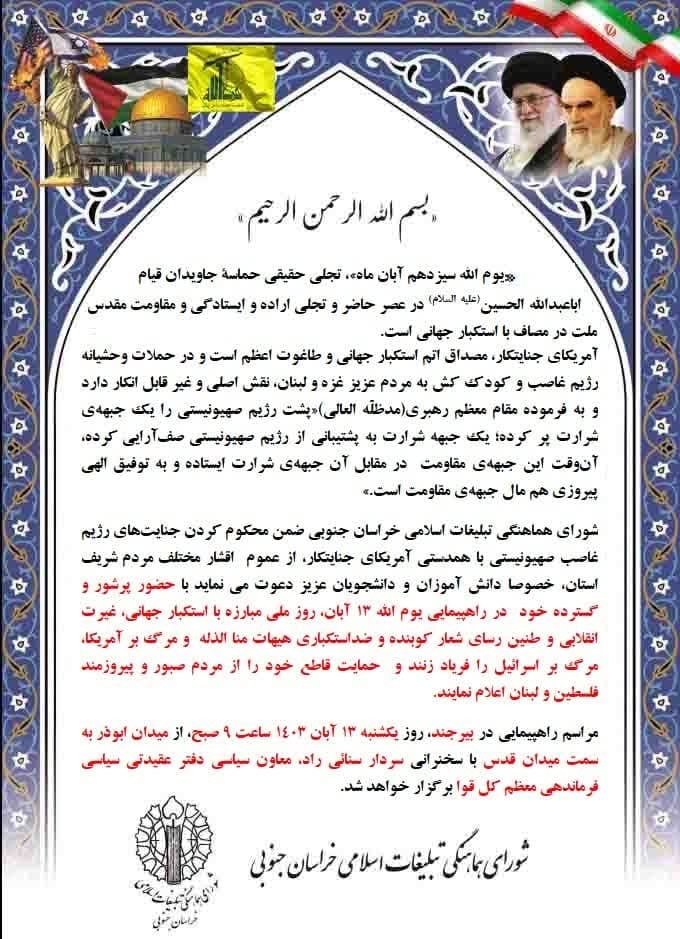 «بسم الله الرحمن الرحیم»
«یوم الله سیزدهم آبان ماه»، تجلی حقیقی حماسهٔ جاویدان قیام
اباعبدالله الحسین(علیه السلام) در عصر حاضر و تجلی اراده و ایستادگی و مقاومت مقدس
ملت در مصاف با استکبار جهانی است.
آمریکای جنایتکار، مصداق اتم استکبار جهانی و طاغوت اعظم است و در حملات وحشیانه
رژیم غاصب و کودک کش به مردم عزیز غزه و لبنان، نقش اصلی و غیر قابل انکار دارد
و به فرموده مقام معظم رهبری(مدظلّه العالی)«پشت رژیم صهیونیستی را یک جبهه‌ی
شرارت پر کرده؛ یک جبهه شرارت به پشتیبانی از رژیم صهیونیستی صف‌آرایی کرده،
آن‌وقت این جبهه‌ی مقاومت در مقابل آن جبهه‌ی شرارت ایستاده و به توفیق الهی
پیروزی هم مال جبهه‌ی مقاومت است.»
شورای هماهنگی تبلیغات اسلامی خراسان جنوبی ضمن محکوم کردن جنایت‌های رژیم
غاصب صهیونیستی با همدستی آمریکای جنایتکار، از عموم اقشار مختلف مردم شریف
استان، خصوصا دانش آموزان و دانشجویان عزیز دعوت می نماید با حضور پرشور و
گسترده خود در راهپیمایی یوم الله ۱۳ آبان، روز ملی مبارزه با استکبار جهانی، غیرت
انقلابی و طنین رسای شعار کوبنده و ضداستکباری هیهات منا الذله و مرگ بر آمریکا،
مرگ بر اسرائیل را فریاد زنند و حمایت قاطع خود را از مردم صبور و پیروزمند
فلسطین و لبنان اعلام نمایند.
مراسم راهپیمایی در بیرجند، روز یکشنبه ۱۳ آبان ۱۴۰۳ ساعت ۹ صبح، از میدان ابوذر به
سمت میدان قدس با سخنرانی سردار سنائی راد، معاون سیاسی دفتر عقیدتی سیاسی
فرماندهی معظم کل قوا برگزار خواهد شد.
شورای هماهنگی تبلیغات اسلامی خراسان جنوبی
شورای هماهنگی تبلیغات اسلامی
خراسان جنوبی